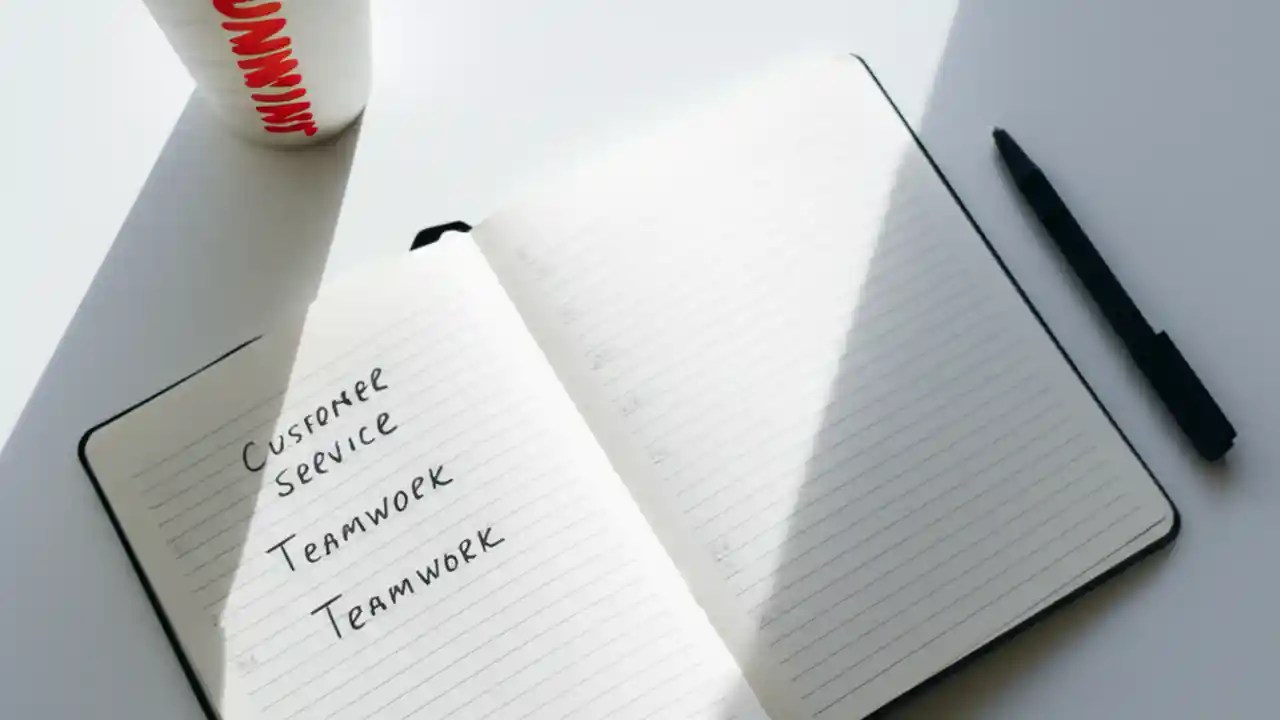 CUSTOMER
SERVICE
TEAMWORK
TEAMWORK